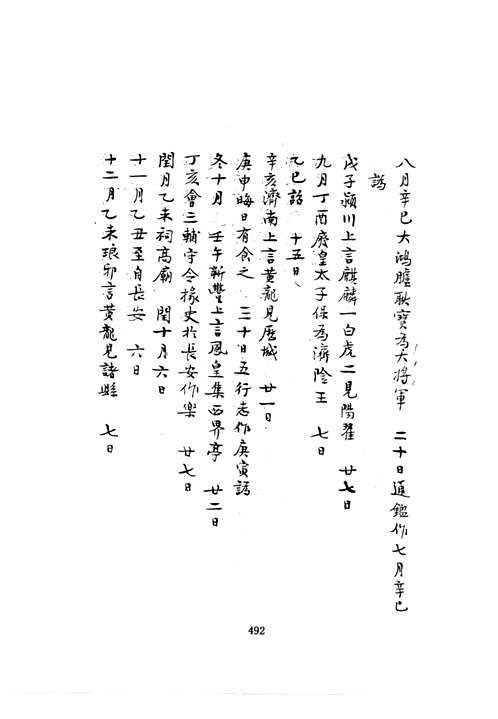 八月辛巳大鴻臚耿寶為大將軍　二十日通鑑作七月辛巳
誤
戊子潁川上言麒麟一白虎二見陽翟　廿七日
九月丁酉廢皇太子保為濟陰王　七日
乙巳詔　十五日
辛亥濟南上言黃龍見歷城　廿一日
庚申晦日有食之　三十日五行志作庚寅誤
冬十月　壬午新豐上言鳳皇集西界亭　廿二日
丁亥會三輔守令掾史於長安作樂　廿七日
閏月乙未祠高廟　閏十月六日
十一月乙丑至自長安　六日
十二月乙未琅邪言黃龍見諸縣　七日
492